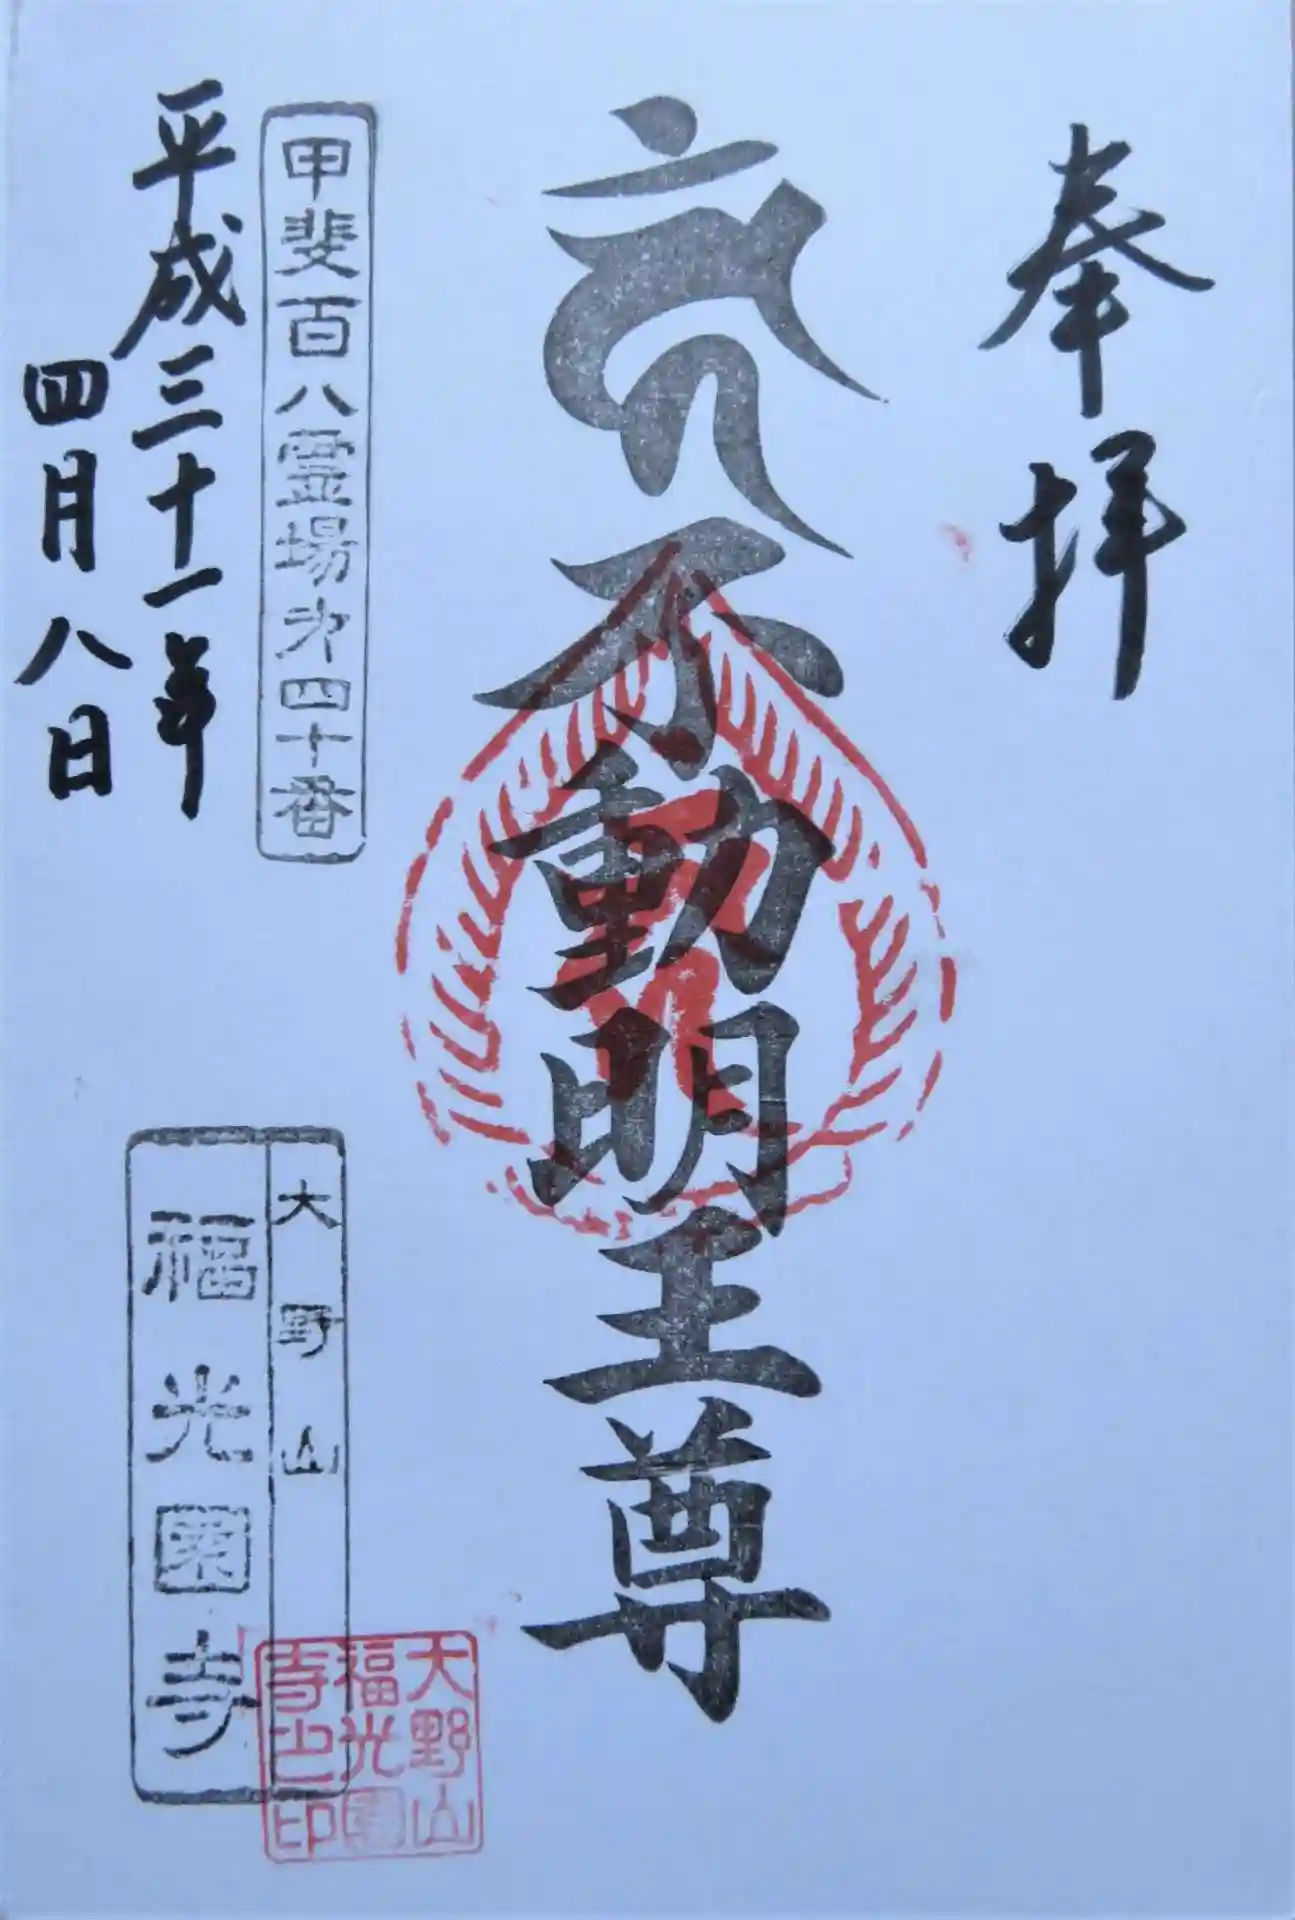 奉拝
不動明王尊
甲斐百八霊場㐧四十番
平成三十一年
四月八日
大野山
福光園寺
大野山
福光園
寺之印